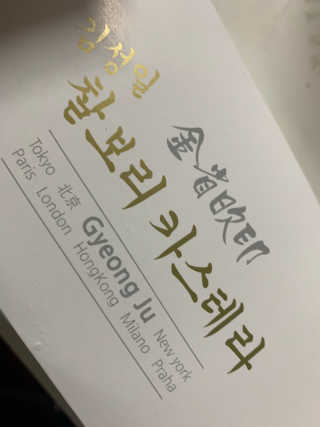 찰보리 카스테라
Tokyo 北京 Gyeong Ju New york
Paris London HongKong Milano Praha